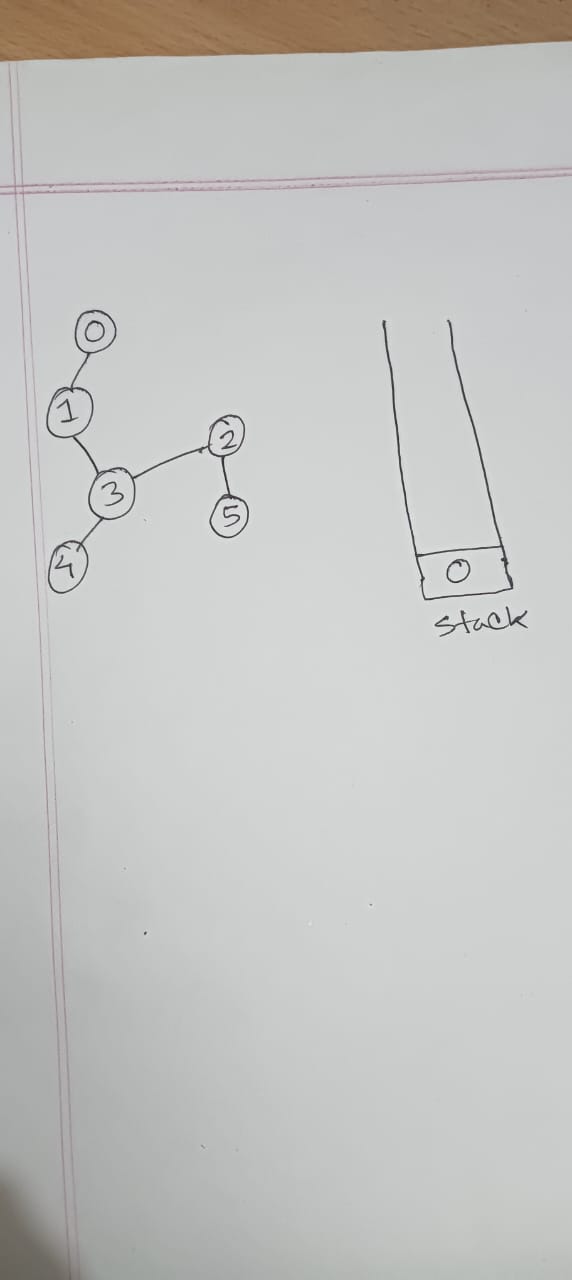 0
1
2
3
5
4
0
stack